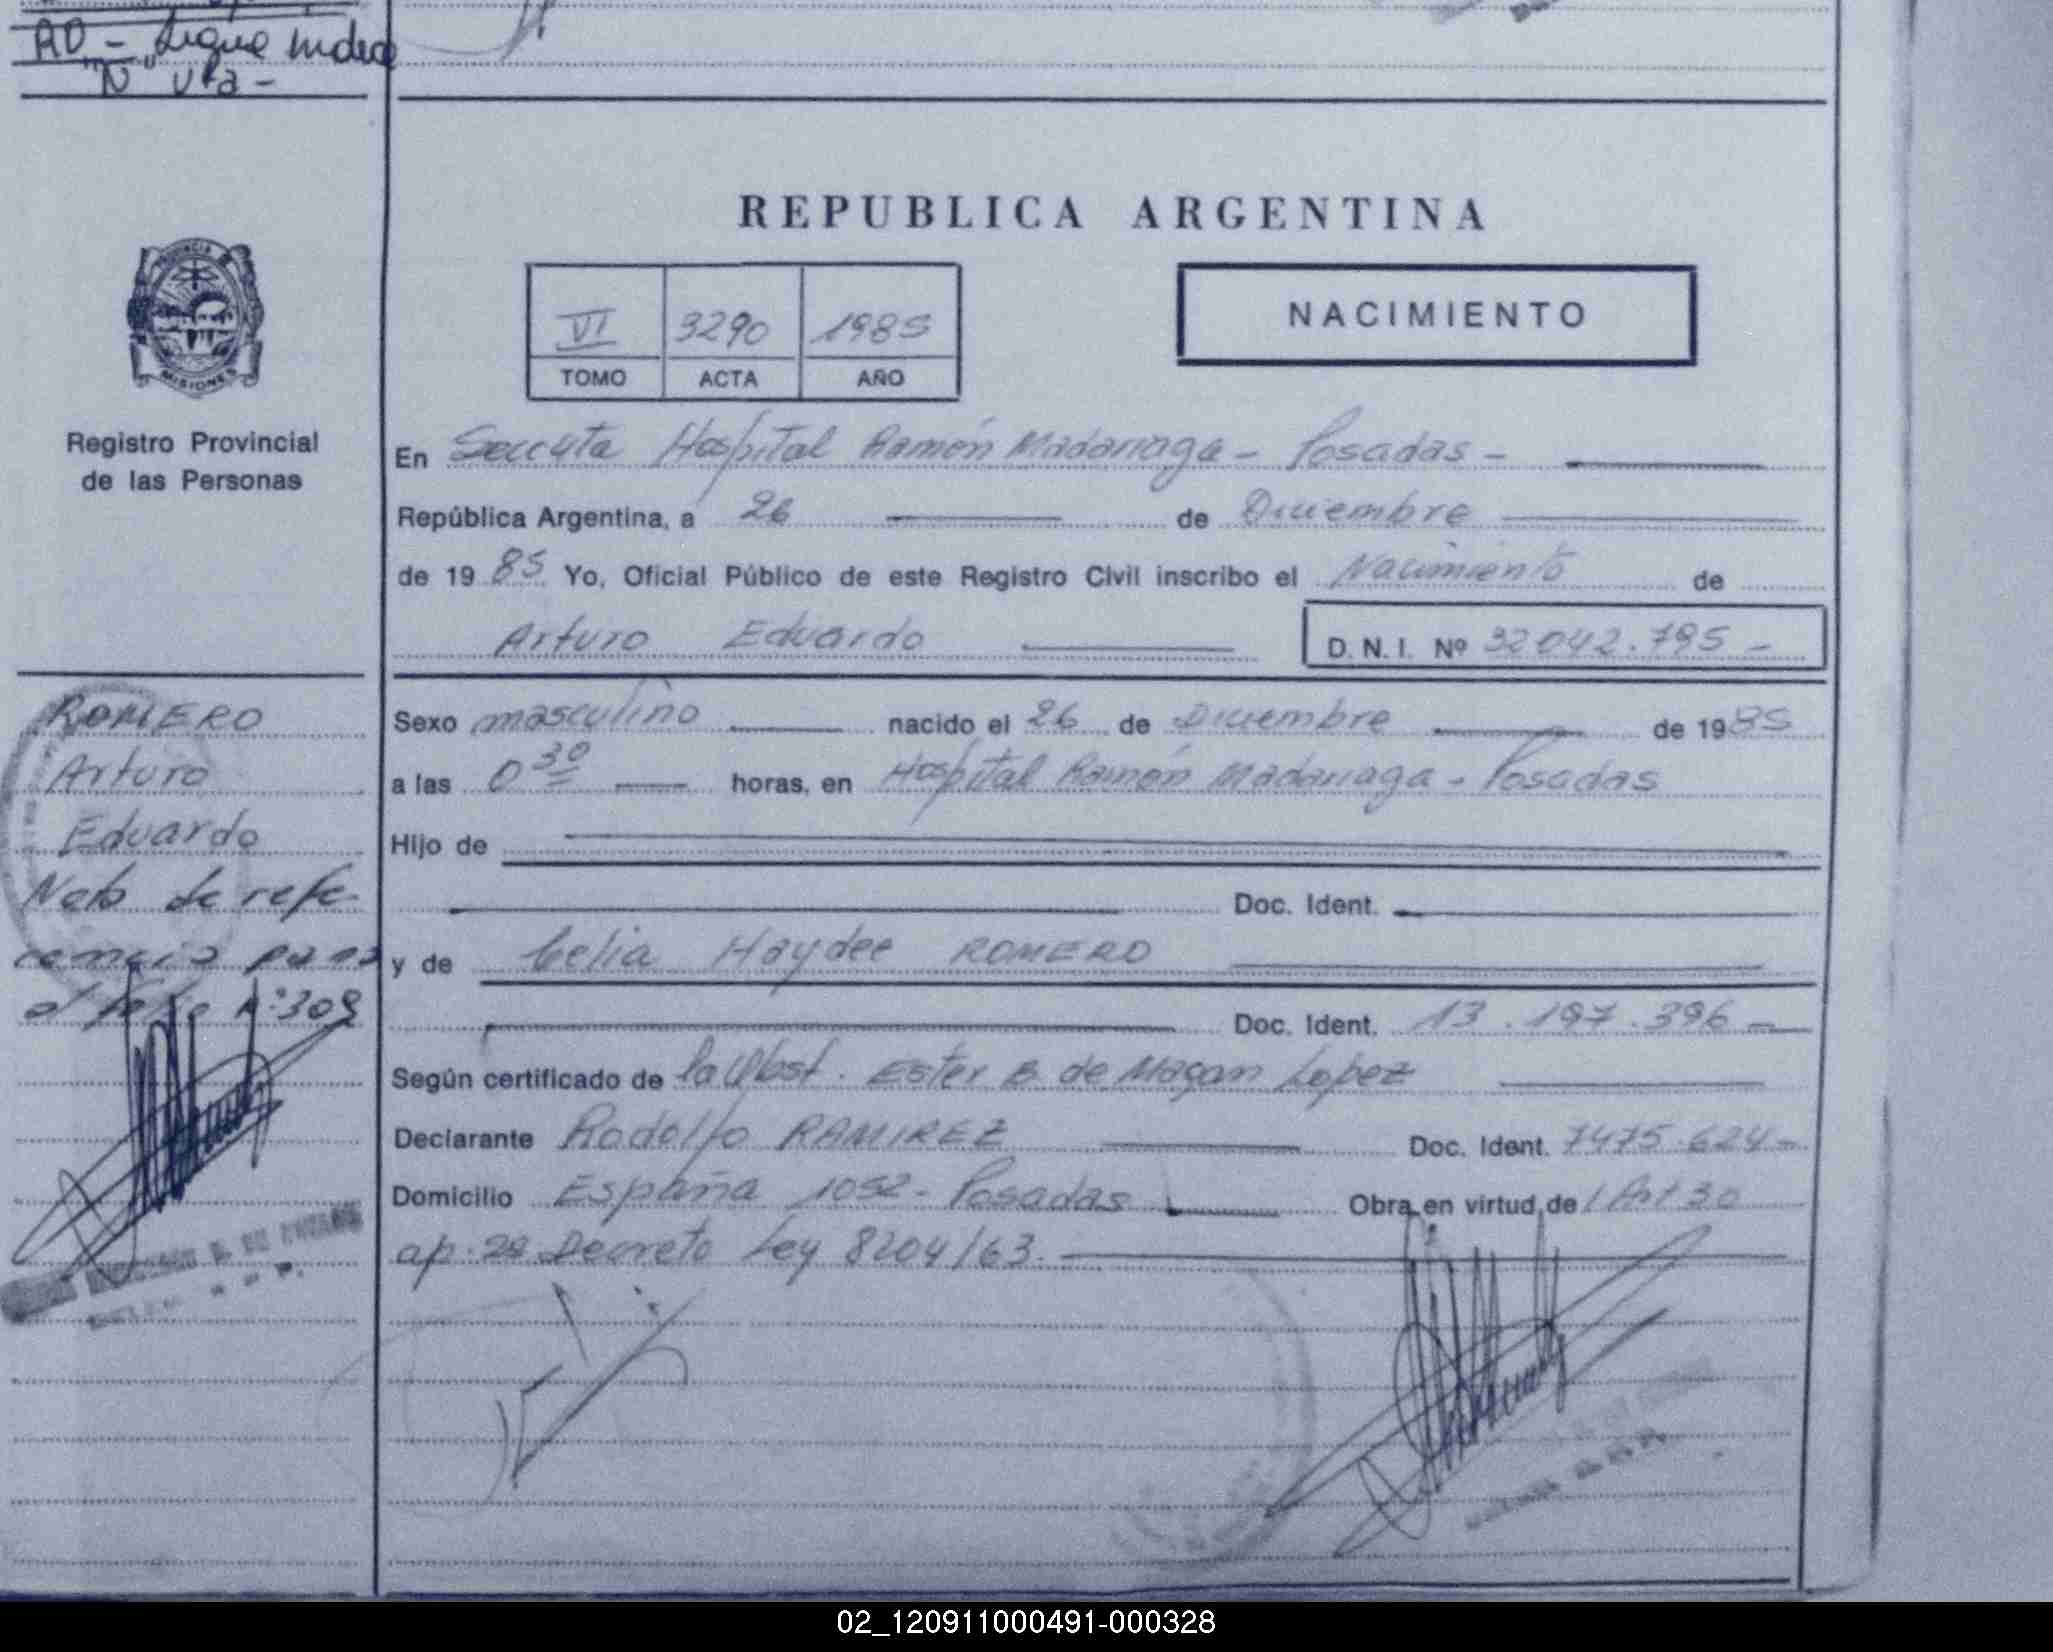 AD - Sigue indice
"N" vta -
REPUBLICA ARGENTINA
VI 3290 1985
TOMO ACTA AÑO
NACIMIENTO
PROVINCIA DE
MISIONES
Registro Provincial
de las Personas
En Seccuta Hospital Ramón Madariaga - Posadas -
República Argentina, a 26 de Diciembre
de 19 85 Yo, Oficial Público de este Registro Civil inscribo el Nacimiento de
Arturo Eduardo D. N. I. Nº 32042.795 -
ROMERO
Arturo
Eduardo
Nota de refe
rencia para
el folio Nº 309
Sexo masculino nacido el 26 de Diciembre de 1985
a las 0 30 horas, en Hospital Ramón Madariaga - Posadas
Hijo de
Doc. Ident.
y de Celia Haydee ROMERO
Doc. Ident. 13.197.396 -
Según certificado de la Obst. Ester B. de Magan Lopez
Declarante Rodolfo RAMIREZ Doc. Ident. 7475.624 -
Domicilio España 1052 - Posadas Obra en virtud de l Art 30
ap. 2º Decreto Ley 8204/63.
02_120911000491-000328